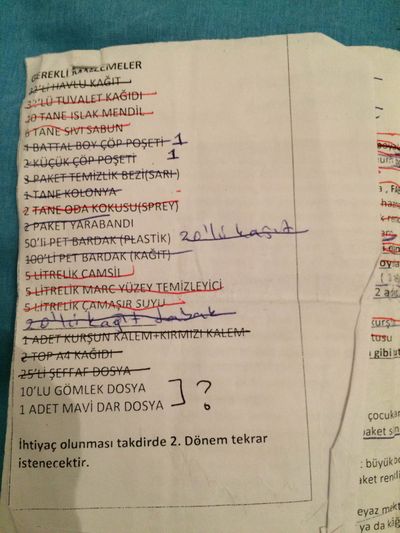 GEREKLİ MALZEMELER
12'Lİ HAVLU KAĞIT
32'LÜ TUVALET KAĞIDI
10 TANE ISLAK MENDİL
6 TANE SIVI SABUN
4 BATTAL BOY ÇÖP POŞETİ 1
2 KÜÇÜK ÇÖP POŞETİ 1
3 PAKET TEMİZLİK BEZİ(SARI)
1 TANE KOLONYA
2 TANE ODA KOKUSU(SPREY)
2 PAKET YARABANDI
50'li PET BARDAK (PLASTİK) 20'li kağıt
100'lİ PET BARDAK (KAĞIT)
5 LİTRELİK CAMSİL
5 LİTRELİK MARC YÜZEY TEMİZLEYİCİ
5 LİTRELİK ÇAMAŞIR SUYU
20'li kağıt tabak
1 ADET KURŞUN KALEM+KIRMIZI KALEM
2 TOP A4 KAĞIDI
25'Lİ ŞEFFAF DOSYA
10'LU GÖMLEK DOSYA
1 ADET MAVİ DAR DOSYA ] ?
İhtiyaç olunması takdirde 2. Dönem tekrar
istenecektir.